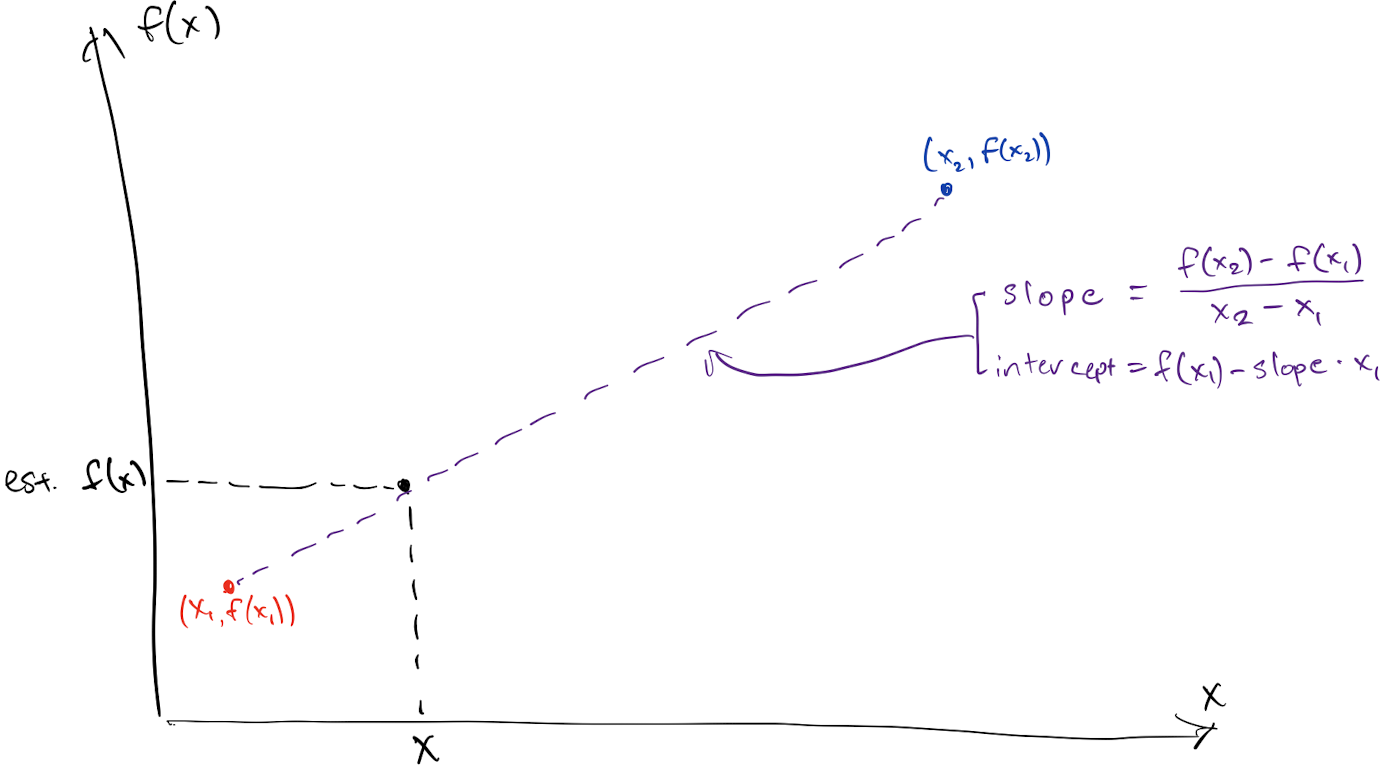 f(x)
(x₂, f(x₂))
slope = f(x₂) - f(x₁) / x₂ - x₁
intercept = f(x₁) - slope · x₁
est. f(x)
(x₁, f(x₁))
x
x